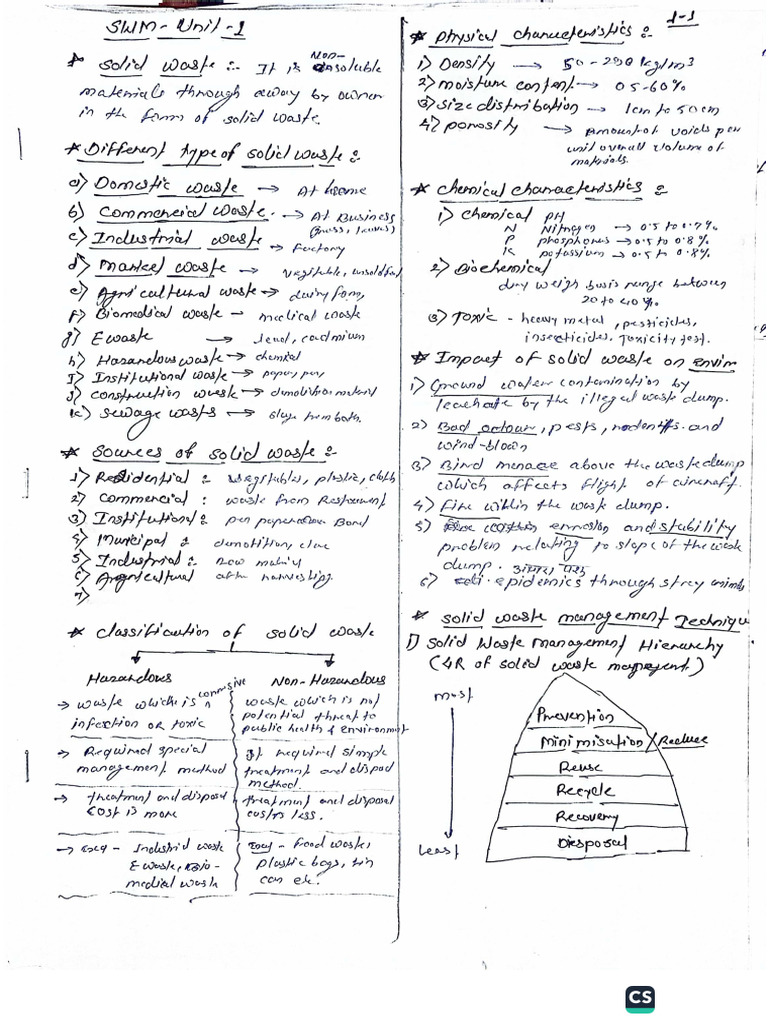 SWM - Unit - 1
* Solid waste :- It is Non-soluble
materials through away by owner
in the form of solid waste.
* Different type of solid waste :
a) Domestic waste → At home
b) Commercial waste. → At Business
c) Industrial waste → Factory
d) Market waste → vegitable, unsold
e) Agricultural waste → dairy form,
f) Biomedical waste → medical waste
g) E waste → lead, cadmium
h) Hazardous waste → chemical
I) Institutional waste → paper, pen
j) construction waste → demolition material
k) sewage wasts →
* Sources of solid waste :-
1) Residential : vegitables, plastic, cloth
2) commercial : waste from Restaurent
3) Institutional : pen paper
4) Municipal : demolition,
5) Industrial :- raw
6) Agricultural after harvesting.
7)
* Classification of solid waste
Hazardous
→ waste which is corrosive
infection or toxic
→ Required special
management method
→ treatment and disposal
cost is more
→ Industrial waste
E waste, Bio-
medial waste
Non-Hazardous
waste which is not
potential threat to
public health & environment
It required simple
treatment and disposal
method.
treatment and disposal
cost is less.
Food waste,
plastic bags, tin
can etc.
1-1
* Physical characteristics :-
1) Density → 50-200 kg/m3
2) moisture content → 05-60%
3) size distribution → 1cm to 50cm
4) porosity → Amount of voids per
unit overall volume of
materials.
* chemical characteristics :
1) chemical PH
N Nitrogen → 0.5 to 0.7%
P phosphorus → 0.5 to 0.8%
K potassium → 0.5 to 0.8%
2) Biochemical
dry weigh basis range between
20 to 40%
3) Toxic - heavy metal, pesticides,
insecticides. Toxicity test.
* Impact of solid waste on Envim
1) Ground water contamination by
leachate by the illegal waste dump.
2) Bad odour, pests, rodents and
wind-blown
3) Bird menace above the waste dump
which affects flight of aircraft.
4) Fire within the waste dump.
5) errosion and stability
problem relating to slope of the waste
dump.
6) epidemics through stray animals
* Solid waste management Technique
1) Solid Waste Management Hierarchy
(4R of solid waste magement)
most
Prevention
Minimisation / Reduce
Reuse
Recycle
Recovery
Disposal
Least
CS